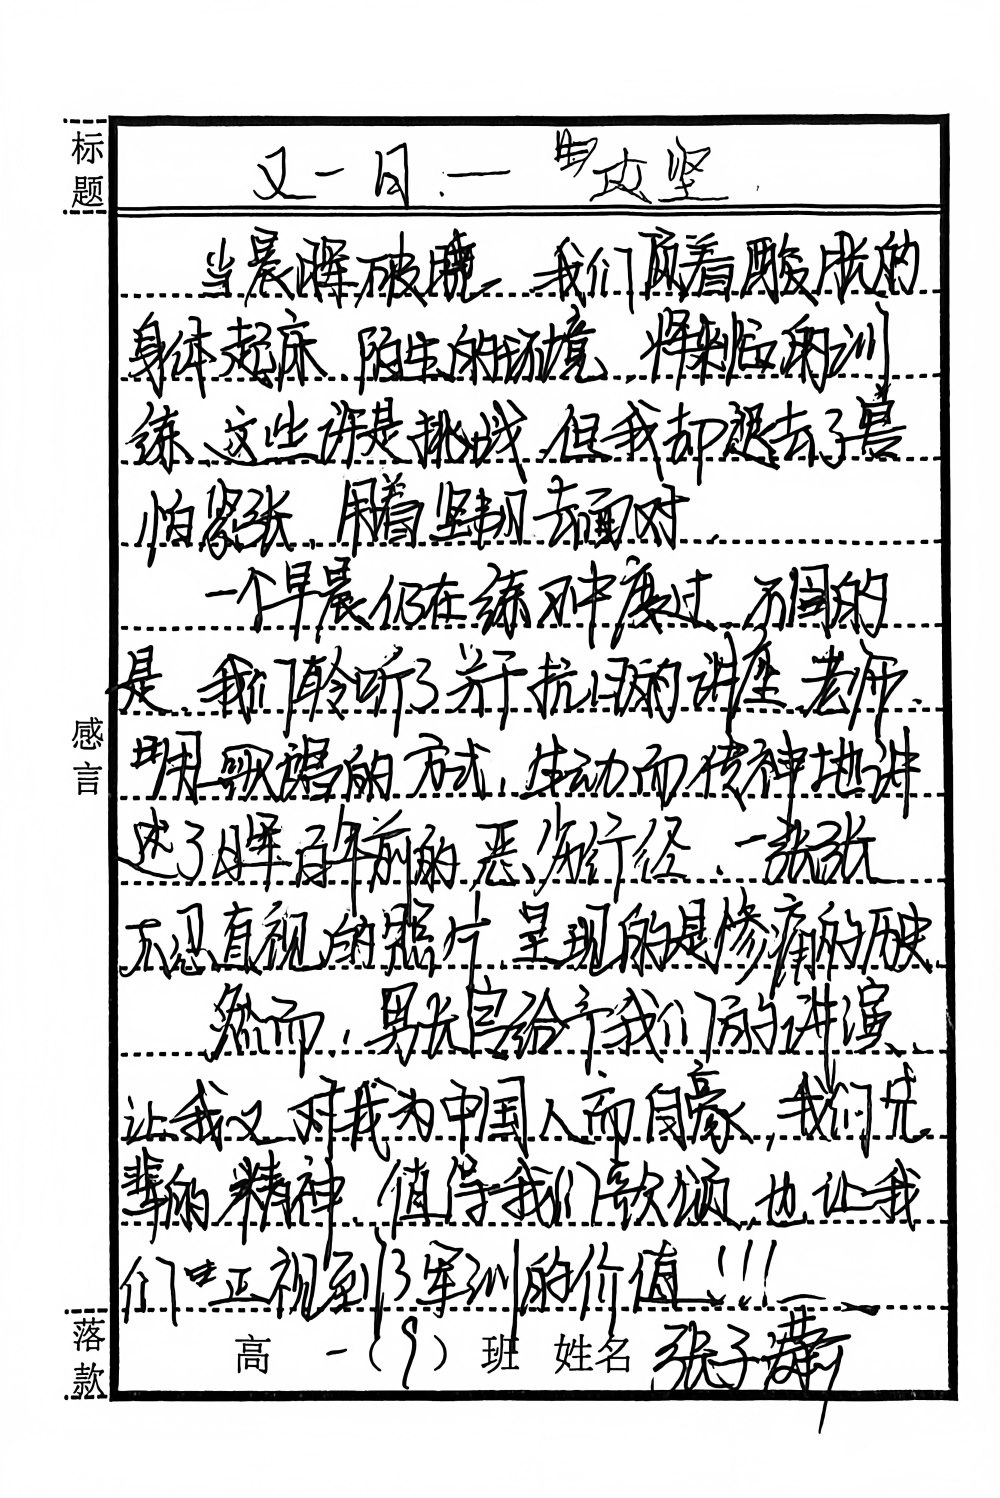 标题
又一日.一 攻坚
当晨晖破晓,我们顾着酸胀的
身体起床,陌生的环境,将来临的训
练,这些许是挑战,但我却褪去了害
怕紧张,用着坚韧去面对.
一个早晨仍在练习中度过,不同的
是,我们聆听了关于抗日的讲座,老师,
用歌谣的方式,生动而传神地讲
述了日军百年前的恶劣行径,一张张
不忍直视的照片,呈现的是惨痛的历史,
感言
然而,男长官给予我们的讲演,
让我又对我为中国人而自豪,我们先
辈的精神,值得我们歌颂,也让我
们正视到了军训的价值!!!
落款
高一(9)班 姓名 张子